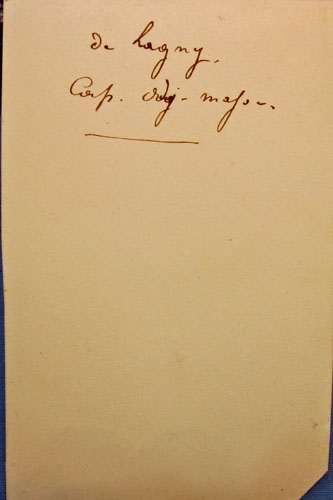 de Lagny.
Cap. adj. major.